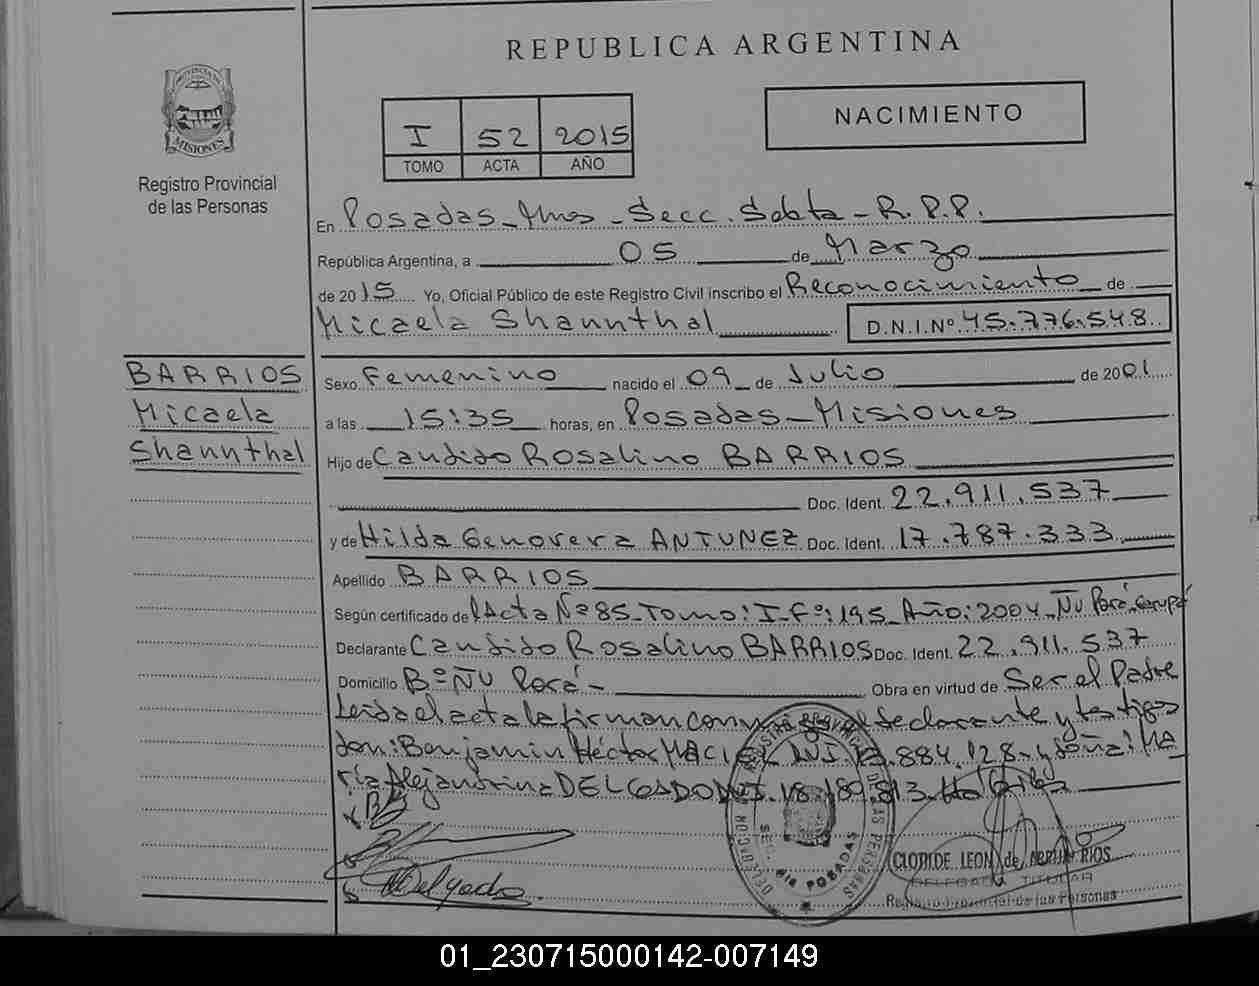 REPUBLICA ARGENTINA
PROVINCIA DE
MISIONES
Registro Provincial
de las Personas
I 52 2015
TOMO ACTA AÑO
NACIMIENTO
En Posadas - Mnes - Secc. Sexta - R.P.P.
República Argentina, a 05 de Marzo
de 2015 Yo, Oficial Público de este Registro Civil inscribo el Reconocimiento de
Micaela Shannthal D.N.I.Nº 45.776.548
BARRIOS
Micaela
Shannthal
Sexo Femenino nacido el 09 de Julio de 2001
a las 15:35 horas, en Posadas - Misiones
Hijo de Candido Rosalino BARRIOS
Doc. Ident. 22.911.537
y de Hilda Genovera ANTUNEZ Doc. Ident. 17.787.333
Apellido BARRIOS
Según certificado del Acta Nº 85 - Tomo: I - Fº: 195 - Año: 2004 - Ñu Porá - Garupá
Declarante Candido Rosalino BARRIOS Doc. Ident. 22.911.537
Domicilio Bº Ñu Porá - Obra en virtud de Ser el Padre
Leida el acta la firman conmigo el declarante y testigos
don: Benjamin Héctor MACIEL DNI. 884.128 y doña: Ma
ría Alejandrina DELGADO DNI. 18.189.813
Delgado
REGISTRO PROVINCIAL DE LAS PERSONAS
DELEGACION
SEC. 6ta POSADAS
CLOTILDE LEON de RIOS
DELEGADA TITULAR
Registro Provincial de las Personas
01_230715000142-007149